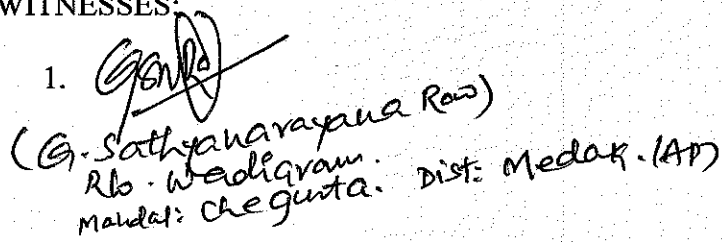 WITNESSES:
1. GSNRo
(G. Sathyanarayana Rao)
R/o. Wadigram.
Mandal: Chegunta. Dist: Medak. (AP)